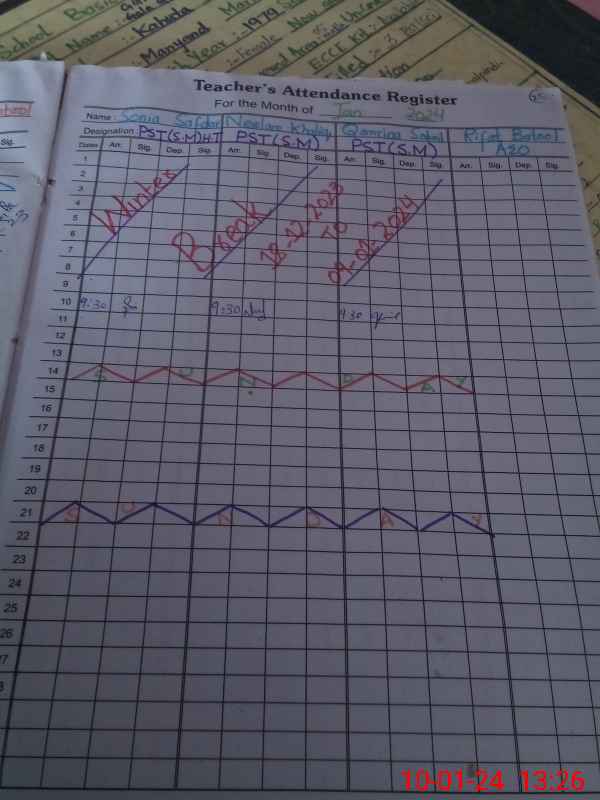 School Basi
Name:- Kahuta
Manyand
Year :- 1979
Female
ECCE Kit :-
Teacher's Attendance Register
For the Month of Jan 2024
Name: Sonia Safdar Neelam Khaliq Qamriga Rifat Batool
Designation: PST(S.M)HT PST(S.M) PST(S.M) AEO
Dates Arr. Sig. Dep. Sig. Arr. Sig. Dep. Sig. Arr. Sig. Dep. Sig. Arr. Sig. Dep. Sig.
Sig.
1
2
3
4
5
6
7
8
9
Winter Break 18-12-2023 TO 09-01-2024
10 9:30 9:30 9:30
11
12
13
14
S U N D A Y
15
16
17
18
19
20
21
S U N D A Y
22
23
24
25
26
27
10-01-24 13:26